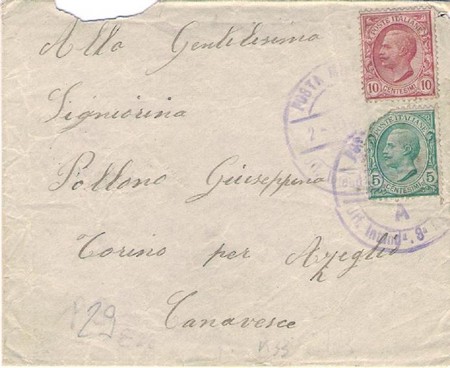 Alla Gentilisima
Signiorina
Pollono Giuseppina
Torino per Azeglio
Canavesce
POSTE ITALIANE
10 CENTESIMI 10
POSTE ITALIANE
5 CENTESIMI 5
POSTA
A
29